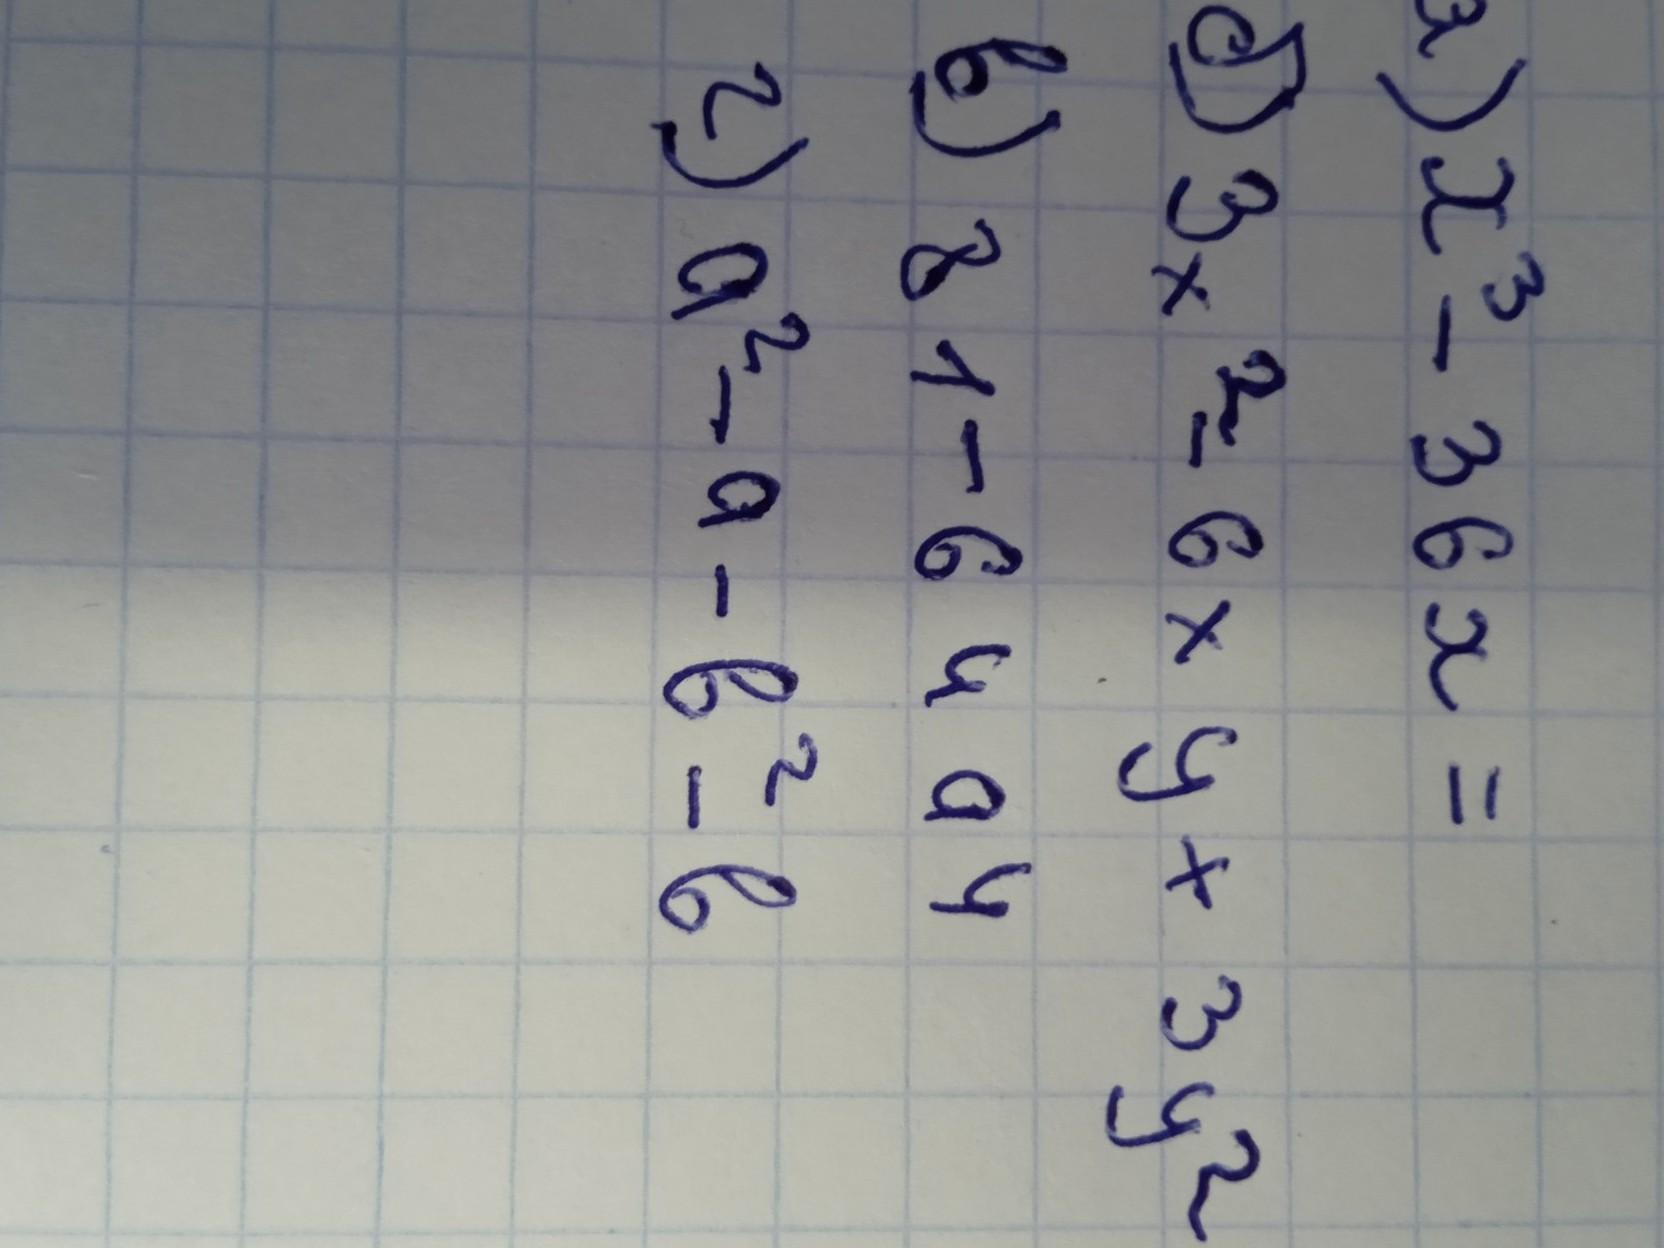 а) x³ - 36x =
б) 3x² - 6xyx 3y²
в) 81 - 64a4
г) a² - a - b² - b